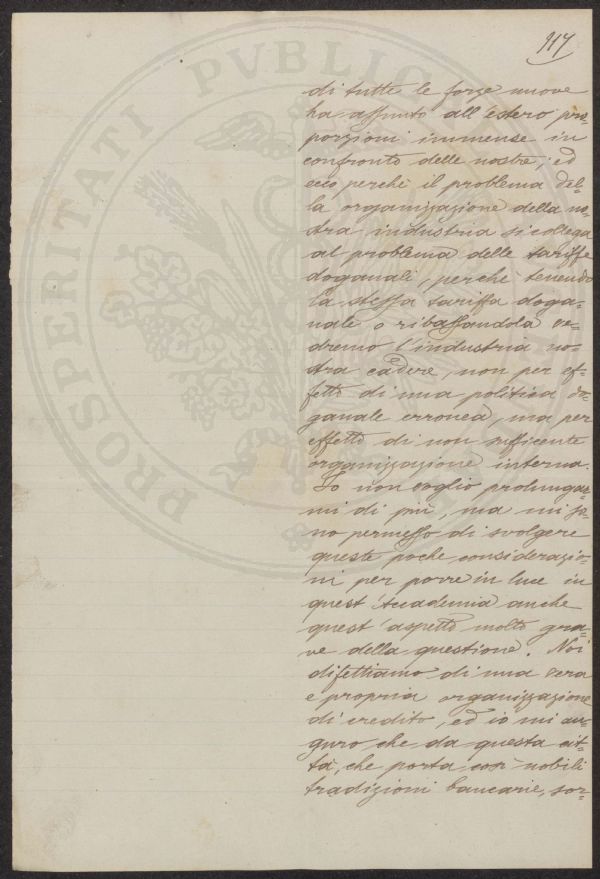 117
di tutte le forze nuove
ha assunto all'estero pro=
porzioni immense in
confronto delle nostre; ed
ecco perchè il problema del=
la organizzazione della no=
stra industria si collega
al problema delle tariffe
doganali, perchè tenendo
la stessa tariffa doga=
nale o ribassandola ve=
dremo l'industria no=
stra cadere, non per ef=
fetto di una politica do=
ganale erronea, ma per
effetto di non sufficente
organizzazione interna.
Io non voglio prolungar=
mi di più, ma mi so=
no permesso di svolgere
queste poche considerazio=
ni per porre in luce in
quest'Accademia anche
quest'aspetto molto gra=
ve della questione. Noi
difettiamo di una vera
e propria organizzazione
di credito, ed io mi au=
guro che da questa cit=
tà, che porta così nobili
tradizioni bancarie, sor=
PROSPERITATI PVBLICAE